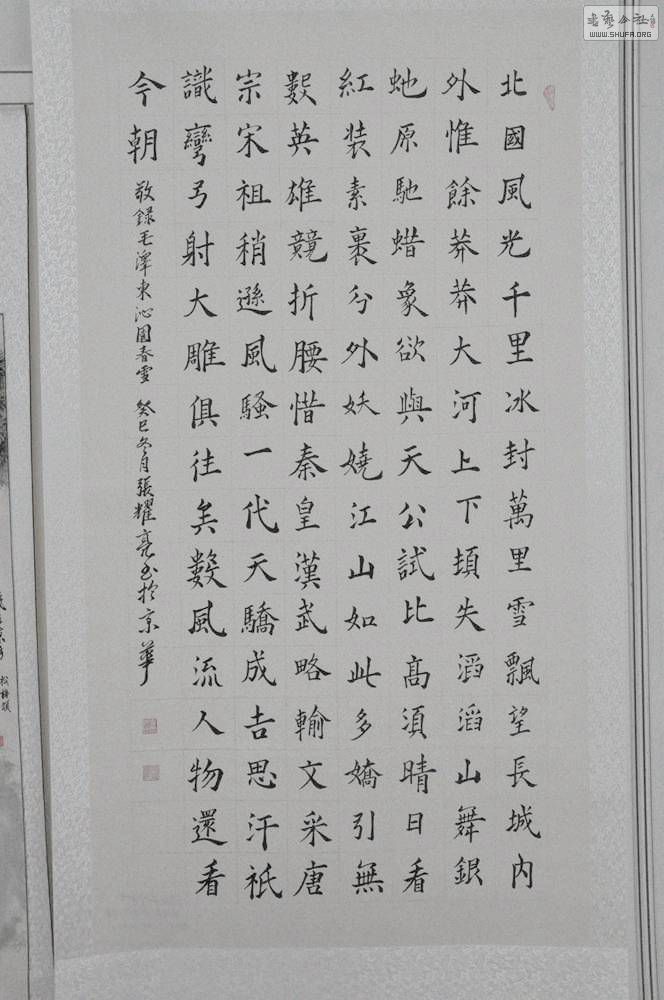 北國風光千里冰封萬里雪飄望長城内
外惟餘莽莽大河上下頓失滔滔山舞銀
虵原馳蜡象欲與天公試比高須晴日看
紅装素裹分外妖嬈江山如此多嬌引無
數英雄競折腰惜秦皇漢武略輸文采唐
宗宋祖稍遜風騷一代天驕成吉思汗祇
識彎弓射大雕俱往矣數風流人物還看
今朝
敬録毛澤東沁園春雪 癸巳冬月張耀亮书於京華
书藝公社
WWW.SHUFA.ORG